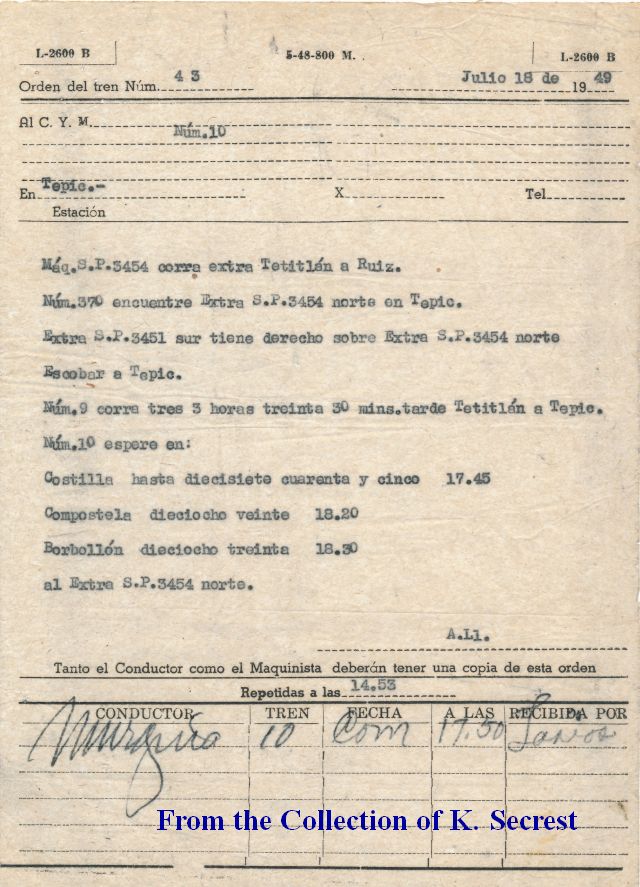 L-2600 B 5-48-800 M. L-2600 B
Orden del tren Núm. 43 Julio 18 de 1949
Al C. Y M. Núm.10
En Tepic.- X Tel
Estación
Máq.S.P.3454 corra extra Tetitlán a Ruiz.
Núm.370 encuentre Extra S.P.3454 norte en Tepic.
Extra S.P.3451 sur tiene derecho sobre Extra S.P.3454 norte
Escobar a Tepic.
Núm.9 corra tres 3 horas treinta 30 mins.tarde Tetitlán a Tepic.
Núm.10 espere en:
Costilla hasta diecisiete cuarenta y cinco 17.45
Compostela dieciocho veinte 18.20
Borbollón dieciocho treinta 18.30
al Extra S.P.3454 norte.
A.Ll.
Tanto el Conductor como el Maquinista deberán tener una copia de esta orden
Repetidas a las 14.53
CONDUCTOR TREN FECHA A LAS RECIBIDA POR
10 Com
From the Collection of K. Secrest